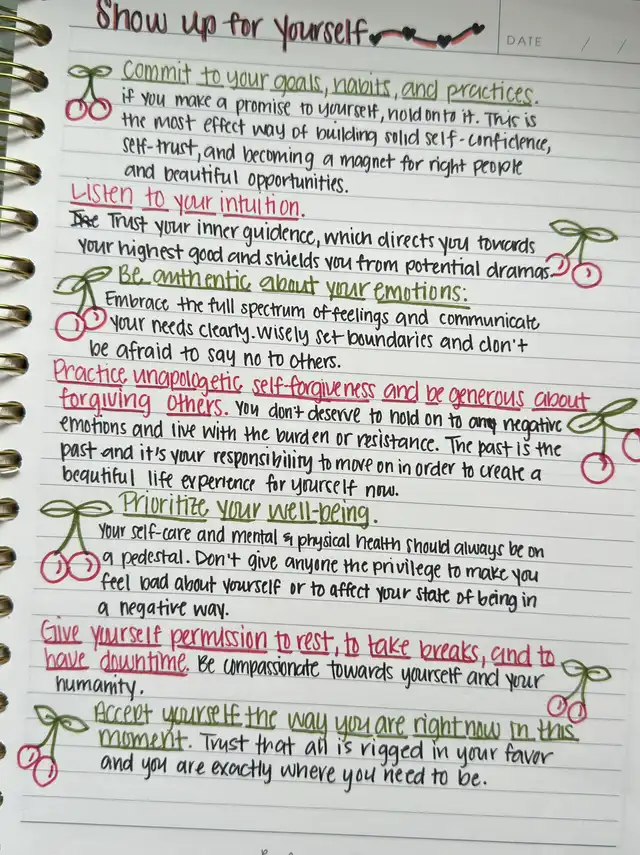 Show up for yourself
DATE / /
Commit to your goals, habits, and practices.
if you make a promise to yourself, hold onto it. This is
the most effect way of building solid self-confidence,
self-trust, and becoming a magnet for right people
and beautiful opportunities.
Listen to your intuition.
Trust your inner guidence, which directs you towards
your highest good and shields you from potential dramas.
Be authentic about your emotions:
Embrace the full spectrum of feelings and communicate
your needs clearly. Wisely set boundaries and don't
be afraid to say no to others.
Practice unapologetic self-forgiveness and be generous about
forgiving others. You don't deserve to hold on to any negative
emotions and live with the burden or resistance. The past is the
past and it's your responsibility to move on in order to create a
beautiful life experience for yourself now.
Prioritize your well-being.
Your self-care and mental & physical health should always be on
a pedestal. Don't give anyone the privilege to make you
feel bad about yourself or to affect your state of being in
a negative way.
Give yourself permission to rest, to take breaks, and to
have downtime. Be compassionate towards yourself and your
humanity.
Accept yourself the way you are right now in this
moment. Trust that all is rigged in your favor
and you are exactly where you need to be.